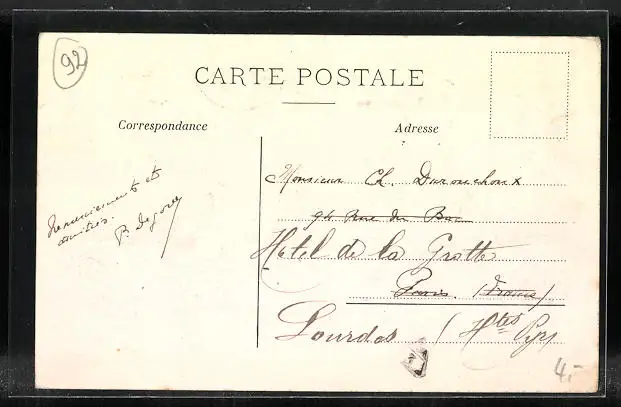 92
CARTE POSTALE
Correspondance
Adresse
Remerciements et
amitiés.
Monsieur Ch.
94 Rue du Bac
Hôtel de la Grotte
Paris. (France)
Lourdes (Htes Pyr
4,-